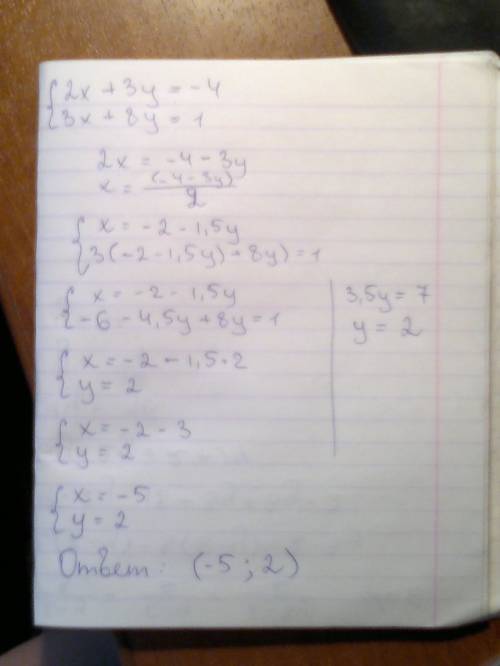 {2x + 3y = -4
{3x + 8y = 1
2x = -4 - 3y
x = (-4 - 3y)/2
{x = -2 - 1,5y
{3(-2 - 1,5y) + 8y) = 1
{x = -2 - 1,5y
{-6 - 4,5y + 8y = 1
3,5y = 7
y = 2
{x = -2 - 1,5·2
{y = 2
{x = -2 - 3
{y = 2
{x = -5
{y = 2
Ответ: (-5 ; 2)